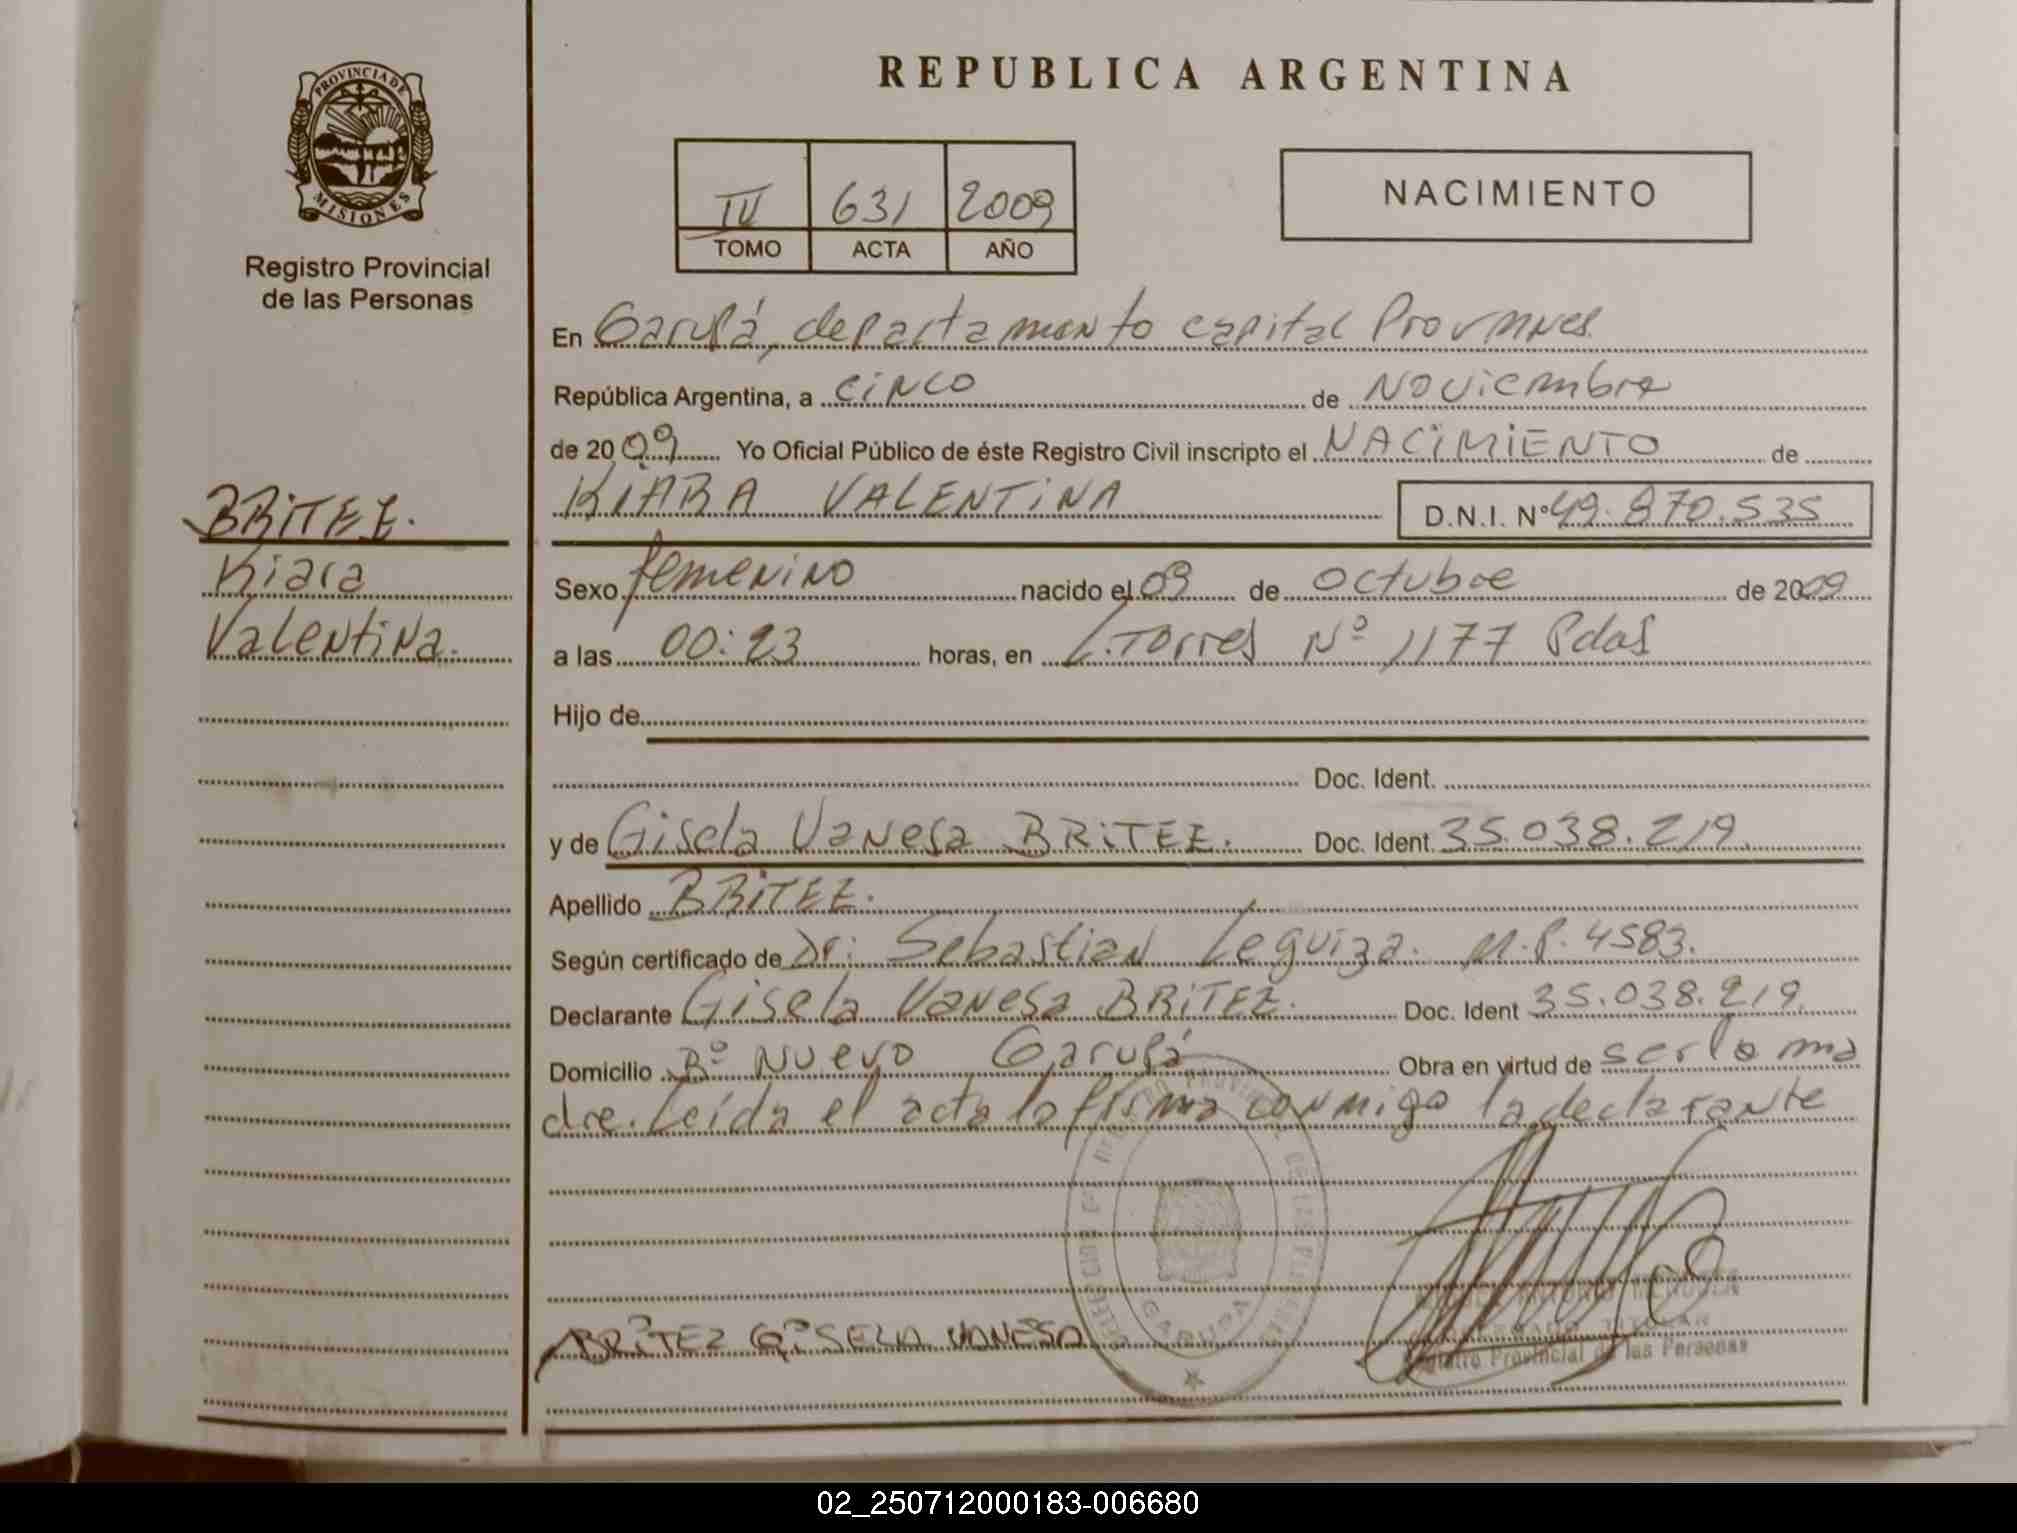 REPUBLICA ARGENTINA
PROVINCIA DE
MISIONES
Registro Provincial
de las Personas
IV 631 2009
TOMO ACTA AÑO
NACIMIENTO
En Garupá, departamento capital Prov mnes
República Argentina, a cinco de Noviembre
de 2009 Yo Oficial Público de éste Registro Civil inscripto el NACIMIENTO de
KIARA VALENTINA D.N.I. Nº 49.870.535
BRITEZ.
Kiara
Valentina.
Sexo femenino nacido el 09 de octubre de 2009
a las 00:23 horas, en L. Torres Nº 1177 Pdas
Hijo de
Doc. Ident.
y de Gisela Vanesa BRITEZ. Doc. Ident. 35.038.219
Apellido BRITEZ.
Según certificado de Dr: Sebastian Leguiza. M.P. 4583.
Declarante Gisela Vanesa BRITEZ. Doc. Ident 35.038.219.
Domicilio Bº Nuevo Garupá Obra en virtud de ser la ma
dre. Leída el acta la firma conmigo la declarante
BRITEZ GISELA VANESA
GARUPA
Registro Provincial de las Personas
02_250712000183-006680